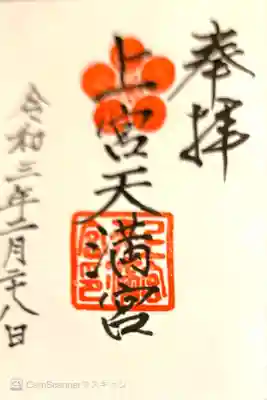 奉拝
上宮天満宮
令和三年二月廿八日
CamScannerでスキャン